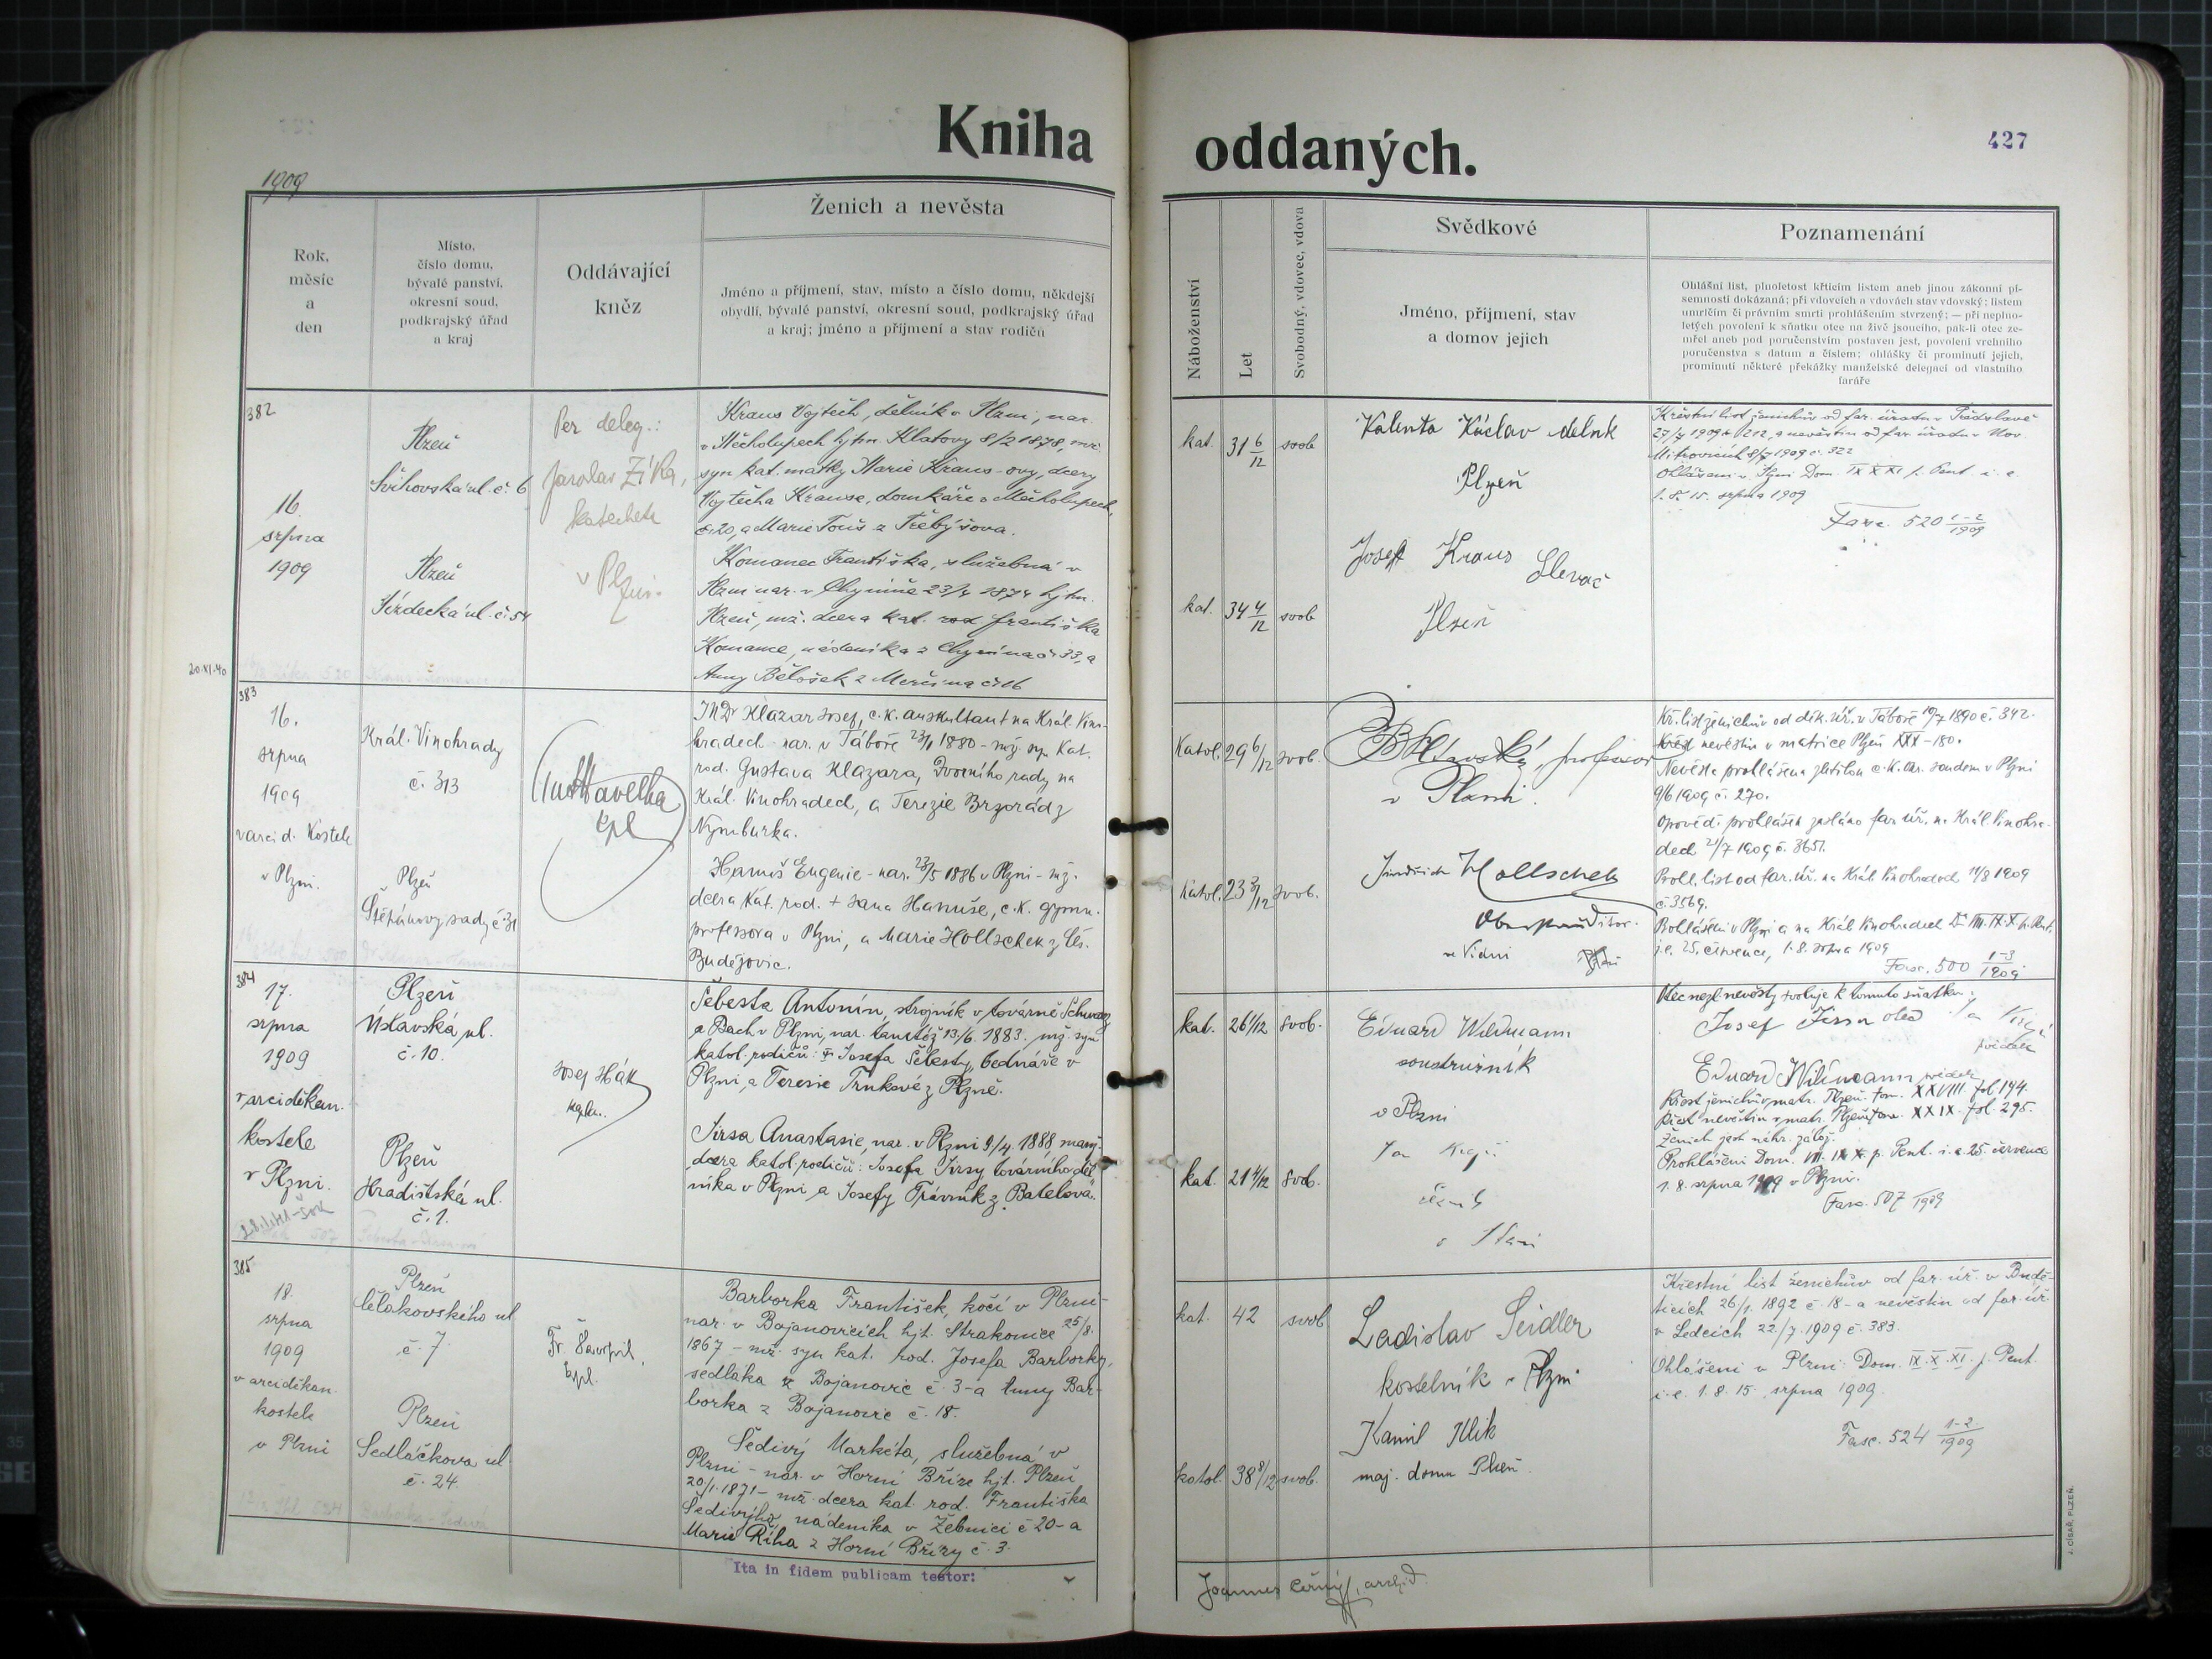 Kniha oddaných.
427
1909
Rok,
měsíc
a
den
Místo,
číslo domu,
bývalé panství,
okresní soud,
podkrajský úřad
a kraj
Oddávající
kněz
Ženich a nevěsta
Jméno a příjmení, stav, místo a číslo domu, někdejší
obydlí, bývalé panství, okresní soud, podkrajský úřad
a kraj; jméno a příjmení a stav rodičů
Náboženství
Let
Svobodný, vdovec, vdova
Svědkové
Jméno, příjmení, stav
a domov jejich
Poznamenání
Ohlášní list, plnoletost křticím listem aneb jinou zákonní pí-
semností dokázaná; při vdovcích a vdovách stav vdovský; listem
umrlčím či právním smrti prohlášením stvrzený; — při neplno-
letých povolení k sňatku otce na živě jsoucího, pak-li otec ze-
mřel aneb pod poručenstvím postaven jest, povolení vrchního
poručenstva s datum a číslem; ohlášky či prominutí jejich,
prominutí některé překážky manželské delegací od vlastního
faráře
382
16.
srpna
1909
Plzeň
Švihovská ul. č. 6
Plzeň
č. 54
Per deleg.:
Jaroslav Zíka,
katecheta
v Plzni.
Kraus Vojtěch, dělník v Plzni, nar.
v Měcholupech hjtm. Klatovy 8/2 1878, mž.
syn kat. matky Marie Kraus-ovy, dcery
Vojtěcha Krause, domkáře v Měcholupech
č. 20, a Marie Touš z Třebýšova.
Komanec Františka, služebná v
Plzni nar. v Chyníně 23/4 1874 hjtm.
Plzeň, mž. dcera kat. rod. Františka
Komance, nádeníka z Chynína č. 33, a
Anny Bělošek z Merčína č. 16
kat. 31 6/12 svob
kat. 34 4/12 svob
Valenta Václav dělnk
Plzeň
Josef Kraus Slevač
Plzeň
Křestní list ženichův od far. úřadu v Předslavě
27/7 1909 č. 212, a nevěstin od far. úřadu v Nov.
Mitrovicích 8/7 1909 č. 322
Ohlášeni v Plzni Dom. IX X XI p. Pent. i. e.
1. 8. 15. srpna 1909
Fasc. 520 1-2/1909
20.XI.40
383
16.
srpna
1909
v arcid. Kostele
v Plzni.
Král. Vinohrady
č. 313
Plzeň
Štěpánovy sady č. 31
Havelka
kpl
JUDr Klazar Josef, c.k. auskultant na Král. Vino-
hradech - nar. v Táboře 23/1 1880 - mž. syn kat.
rod. Gustava Klazara, dvorního rady na
Král. Vinohradech, a Terezie Brzorád z
Nymburka.
Hanuš Eugenie - nar. 23/5 1886 v Plzni - mž.
dcera kat. rod. + Jana Hanuše, c.k. gymn.
professora v Plzni, a Marie Hollschek z Čes.
Budějovic.
Katol. 29 6/12 svob.
Katol. 23 2/12 svob.
professor
v Plzni.
Jindřich Hollschek
ve Vídni
Kř. list ženichův od děk. úř. v Táboře 10/7 1890 č. 342.
Křest nevěstin v matrice Plzeň XXX - 180.
Nevěsta prohlášena zletilou c.k. okr. soudem v Plzni
9/6 1909 č. 270.
Opověd. prohlášek zasláno far. úř. na Král. Vinohra-
dech 21/7 1909 č. 3651.
Prohl. list od far. úř. na Král. Vinohradech 11/8 1909
č. 3569.
Prohlášeni v Plzni a na Král. Vinohradech D. VIII. IX. X. p. Pent.
j.e. 25. července, 1. 8. srpna 1909
Fasc. 500 1-3/1909
384
17.
srpna
1909
v arciděkan.
kostele
v Plzni.
Plzeň
Úslavská ul.
č. 10.
Plzeň
Hradištská ul.
č. 1.
Josef Hák
kapln.
Šebesta Antonín, strojník v továrně Schwarz
a Bach v Plzni, nar. tamtéž 13/6. 1883. mž. syn
katol. rodičů: + Josefa Šebesty, bednáře v
Plzni, a Teresie Trnkové z Plzně.
Jirsa Anastasie, nar. v Plzni 9/4. 1888 manž.
dcera katol. rodičů: Josefa Jirsy továrního děl-
níka v Plzni, a Josefy Trávník z Batelova.
kat. 26 1/12 svob.
kat. 21 4/12 svob.
Eduard Wildmann
soustružník
v Plzni
Otec nezl. nevěsty svoluje k tomuto sňatku.
Josef Jirsa otec
svědek
Eduard Wildmann svědek
Křest ženichův matr. Plzeň. Tom. XXVIII fol. 144.
Křest nevěstin v matr. Plzeň Tom. XXIX. fol. 295.
Ženich jest náhr. zálož.
Prohlášeni Dom. VIII. IX. X. p. Pent. i. e. 25. července
1. 8. srpna 1909 v Plzni.
Fasc. 507 1909
385
18.
srpna
1909
v arciděkan.
kostele
v Plzni
Plzeň
Čelakovského ul
č. 7.
Plzeň
Sedláčkova ul.
č. 24.
kpl.
Barborka František, kočí v Plzni -
nar. v Bojanovicích hjt. Strakonice 25/8.
1867 - mž. syn kat. rod. Josefa Barborky,
sedláka z Bojanovic č. 3 - a Anny Bar-
borka z Bojanovic č. 18.
Šedivý Markéta, služebná v
Plzni - nar. v Horní Bříze hjt. Plzeň
20/1. 1871 - mž. dcera kat. rod. Františka
Šedivýho, nádeníka v Žebnici č 20 - a
Marie Říha z Horní Břízy č. 3.
kat. 42 svob.
katol. 38 8/12 svob.
Ladislav Seidler
kostelník v Plzni
Kamil Klik
maj. domu Plzeň.
Křestní list ženichův od far. úř. v Budě-
ticích 26/1. 1892 č. 18 - a nevěstin od far. úř.
v Ledcích 22./7. 1909 č. 383.
Ohlášeni v Plzni: Dom. IX. X. XI. p. Pent.
i. e. 1. 8. 15. srpna 1909.
Fasc. 524 1-2/1909
Ita in fidem publicam testor:
Joannes Černý, archid.
J. CÍSAŘ, PLZEŇ.